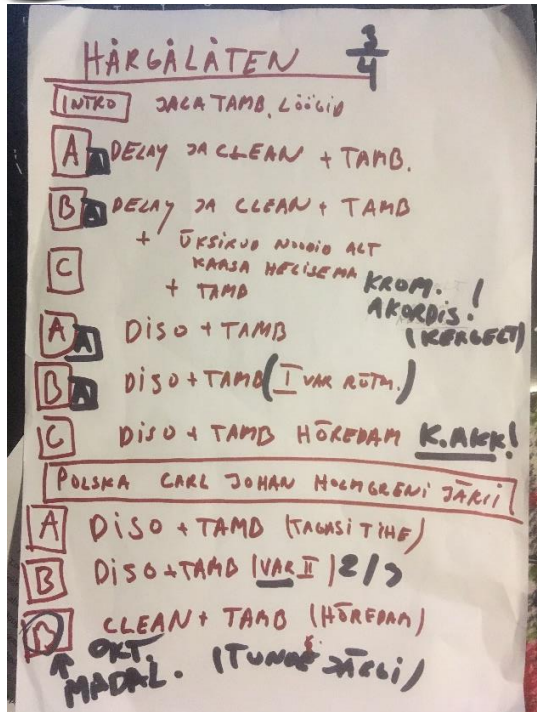 HÅRGALÅTEN 3/4
INTRO JALA TAMB. LÖÖGID
A A DELAY JA CLEAN + TAMB.
B A DELAY JA CLEAN + TAMB
+ ÜKSIKUD NOODID ALT
C KAASA HELISEMA
+ TAMB
KROM. !
AKORDIS.
(KERGELT)
A A DISO + TAMB
B A DISO + TAMB (I VAR RÜTM.)
C DISO + TAMB HÕREDAM K.AKK!
POLSKA CARL JOHAN HOLMGRENI JÄRGI
A DISO + TAMB (TAGASI TIHE)
B DISO + TAMB (VAR II)
CLEAN + TAMB (HÕREDAM)
OKT.
MADAL. (TUNDE JÄRGI)